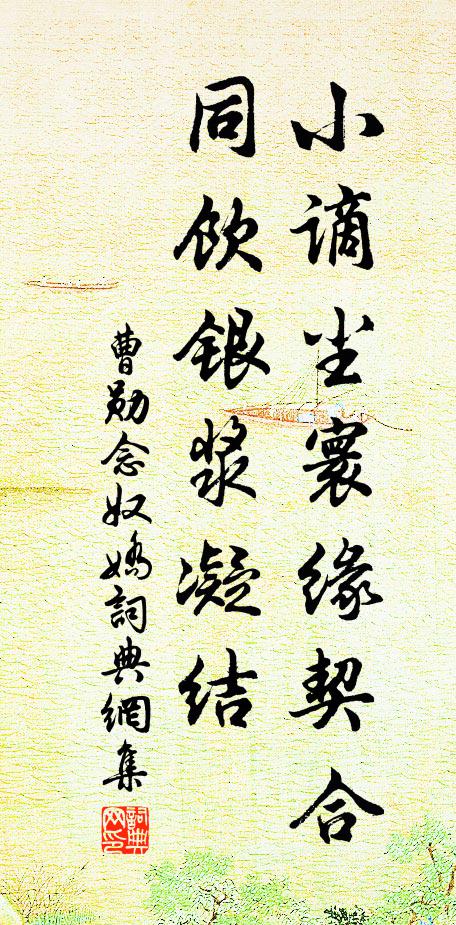 小谪尘寰缘契合
同饮银浆凝结
曹勋念奴娇詞典網集
詞典网印